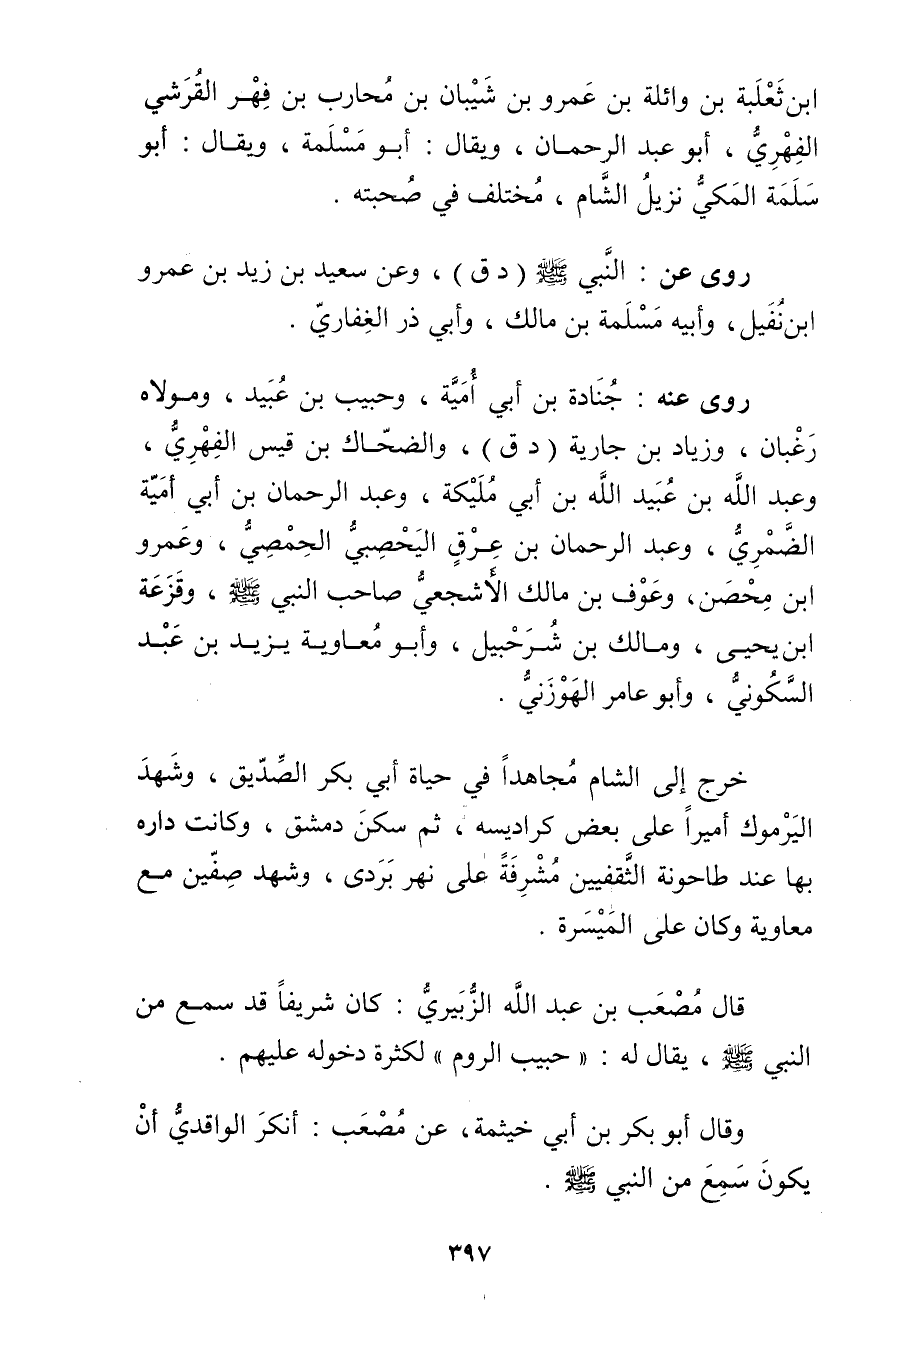 ابن ثَعْلَبة بن وائلة بن عَمرو بن شَيْبان بن مُحارب بن فِهْر القُرَشي
الفِهْرِيُّ ، أبو عبد الرحمان ، ويقال : أبو مَسْلَمة ، ويقال : أبو
سَلَمَة المَكيُّ نزيلُ الشَّام ، مُختلف في صُحبته .
روى عن : النَّبي ﷺ ( د ق ) ، وعن سعيد بن زيد بن عمرو
ابن نُفَيل ، وأبيه مَسْلَمة بن مالك ، وأبي ذر الغِفاريّ .
روى عنه : جُنَادة بن أبي أُمَيَّة ، وحبيب بن عُبَيد ، ومولاه
رَغْبان ، وزياد بن جارية ( د ق ) ، والضحّاك بن قيس الفِهْرِيُّ ،
وعبد اللَّه بن عُبَيد اللَّه بن أبي مُلَيْكة ، وعبد الرحمان بن أبي أمَيّة
الضَّمْرِيُّ ، وعبد الرحمان بن عِرْقٍ اليَحْصِبيُّ الحِمْصِيُّ ، وعَمرو
ابن مِحْصَن ، وعَوْف بن مالك الأشجعيُّ صاحب النبي ﷺ ، وقَزَعَة
ابن يحيى ، ومالك بن شُرَحْبيل ، وأبو مُعاوية يزيد بن عَبْد
السَّكُونيُّ ، وأبو عامر الهَوْزَنيُّ .
خرج إلى الشام مُجاهداً في حياة أبي بكر الصِّدّيق ، وشَهدَ
اليَرْموك أميراً على بعض كراديسه ، ثم سكنَ دمشق ، وكانت داره
بها عند طاحونة الثَّقفيين مُشْرِفَةً على نهر بَرَدى ، وشهد صِفّين مع
معاوية وكان على المَيْسَرة .
قال مُصْعَب بن عبد اللَّه الزُّبَيريُّ : كان شريفاً قد سمع من
النبي ﷺ ، يقال له : « حبيب الروم » لكثرة دخوله عليهم .
وقال أبو بكر بن أبي خيثمة ، عن مُصْعَب : أنكرَ الواقديُّ أنْ
يكونَ سَمِعَ من النبي ﷺ .
٣٩٧